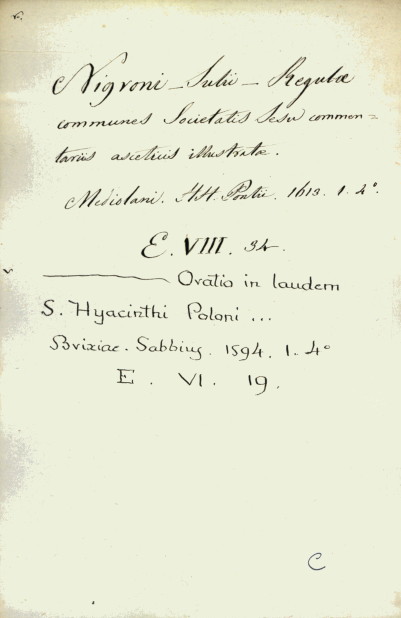 Nigroni - Julii - Regulæ
communes Societatis Jesu commen=
tariis asceticis illustratæ.
Mediolani. HH. Pontii. 1613. 1. 4°.
E. VIII. 34.
Oratio in laudem
S. Hyacinthi Poloni ...
Brixiae. Sabbius. 1594. 1. 4°
E. VI. 19.
C